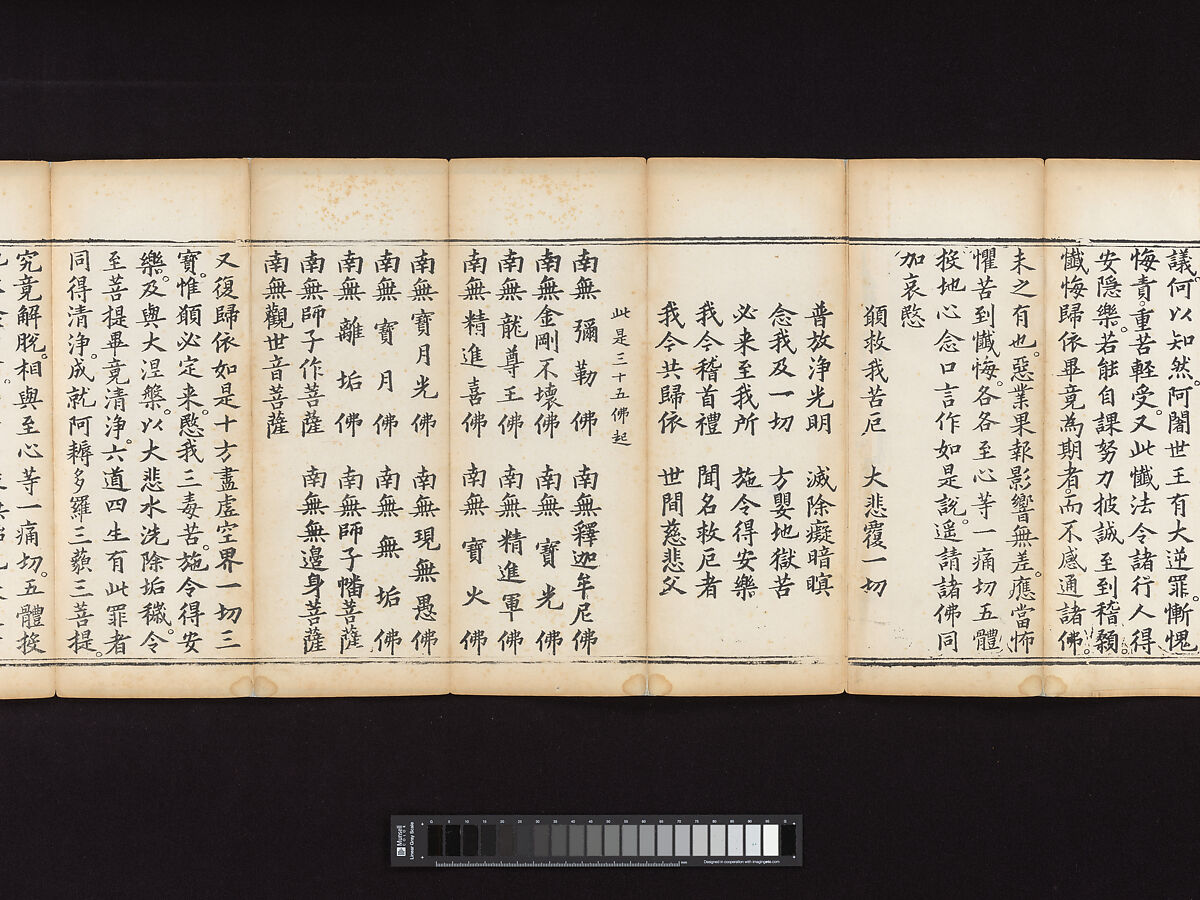 議。何以知然。阿闍世王有大逆罪。慚愧
悔責。重苦輕受。又此懺法令諸行人得
安隱樂。若能自課努力披誠至到稽顙。
懺悔歸依畢竟為期者。而不感通諸佛。
未之有也。惡業果報影響無差。應當怖
懼苦到懺悔。各各至心等一痛切五體
投地心念口言作如是說。遙請諸佛同
加哀愍
願救我苦厄　大悲覆一切
普放淨光明　滅除癡暗暝
念我及一切　方嬰地獄苦
必来至我所　施令得安樂
我今稽首禮　聞名救厄者
我今共歸依　世間慈悲父
此是三十五佛起
南無彌勒佛　南無釋迦牟尼佛
南無金剛不壞佛　南無寶光佛
南無龍尊王佛　南無精進軍佛
南無精進喜佛　南無寶火佛
南無寶月光佛　南無現無愚佛
南無寶月佛　南無無垢佛
南無離垢佛　南無師子幡菩薩
南無師子作菩薩　南無無邊身菩薩
南無觀世音菩薩
又復歸依如是十方盡虛空界一切三
寶。惟願必定来。愍我三毒苦。施令得安
樂。及與大涅槃。以大悲水洗除垢穢。令
至菩提畢竟清淨。六道四生有此罪者
同得清淨。成就阿耨多羅三藐三菩提。
究竟解脫。相與至心等一痛切。五體投
Munsell
COLOR
Linear Gray Scale
0 5 10 15 20 25 30 35 40 45 50 55 60 65 70 75 80 85 90 95
mm
Designed in cooperation with imagingetc.com